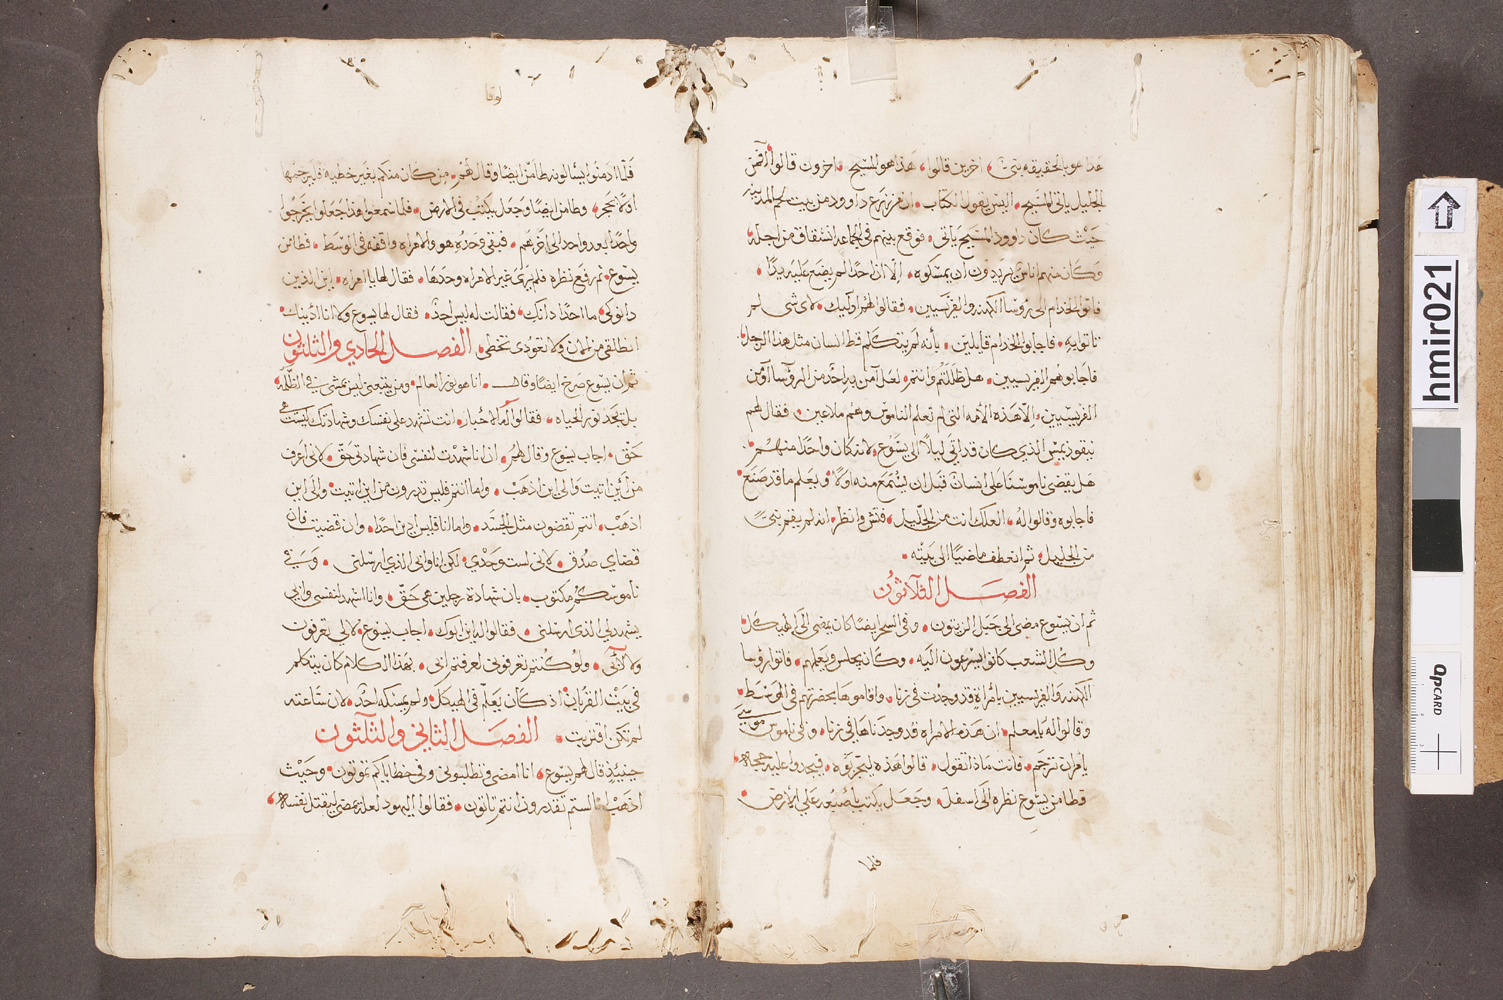 هذا هو بالحقيقه نبي، اخرين قالوا، هذا هو المسيح، اخرون قالوا افمن
الجليل ياتي المسيح، اليس يقول الكتاب، ان من زرع داوود من بيت لحم المدينه
حيث كان داوود المسيح ياتي، فوقع بينهم في الجماعه انشقاق من اجله،
وكان منهم اناس يريدون ان يمسكوه، الا ان احدا لم يضع عليه يدا،
فاتوا الخدام الى روسا الكهنه والفريسيين، فقالوا لهم اوليك، لاي شي لم
تاتوا به، فاجابوا الخدام قايلين، بأنه لم يتكلم قط انسان مثل هذا الرجل،
فاجابوهم الفريسيين، هل ظللتم وانتم، لعل آمن به احد من الروسا او من
الفريسيين، الا هذه الأمه التي لم تعلم الناموس وهم ملاعين، فقال لهم
نيقوديمس الذي كان قد اتى ليلا الى يسوع، لانه كان واحدا منهم،
هل يقضي ناموسنا على انسان قبل ان يسمع منه اولا، ويعلم ما قد صنع،
فاجابوه وقالوا له، العلك انت من الجليل، فتش وانظر، انه لم يقم نبي
من الجليل، ثم انعطف ماضيا الى بيته،
الفصل الثلاثون
ثم ان يسوع مضى الى جبل الزيتون، وفي السحر ايضا كان يمضي الى الهيكل،
وكل الشعب كانوا يسرعون اليه، وكان يجلس ويعلمهم، فاتوا روسا
الكهنه والفريسيين بامراة قد وجدت في زنا، واقاموها بحضرتهم في الوسط،
وقالوا له يا معلم، ان هذه الامراه قد وجدناها في زنا، وفي ناموس موسى
يامر ان ترجم، فانت ماذا تقول، قالوا هذه ليجربوه، فيجدوا عليه حجة،
فطامن يسوع نظره الى اسفل، وجعل يكتب باصبعه على الارض،
فلما
لوقا
فلما ادمنوا يسئالونه طامن ايضا وقال لهم، من كان منكم بغير خطيه فليرجمها
اولا بحجر، وطامن ايضا وجعل يكتب في الارض، فلما سمعوا هذا جعلوا يخرجوا
واحدا بعد واحد الى اخرهم، فبقي وحده هو والامراه واقفه في الوسط، فطامن
يسوع، ثم رفع نظره فلم يرى غير الامراه وحدها، فقال لها يا امراه، اين الذين
دانوكي، ما احدا دانك، فقالت له ليس احد، فقال لها يسوع ولا انا ادينك،
انطلقي من الان ولا تعودي تخطي، الفصل الحادي والثلثون
ثم ان يسوع صرخ ايضا وقال، انا هو نور العالم، ومن يتبعني ليس يمشي في الظلمه،
بل يجد نور الحياه، فقالوا له الاحبار، انت تشهد على نفسك وشهادتك ليست هي
حق، اجاب يسوع وقال لهم، ان انا شهدت لنفسي فان شهادتي حق، لاني اعرف
من اين اتيت والى اين اذهب، واما انتم فليس تدرون من اين اتيت، والى اين
اذهب، انتم تقضون مثل الجسد، واما انا فليس ادين احدا، وان قضيت فان
قضاي صدق، لاني لست وحدي، لكن انا وابي الذي ارسلني، وسي في
ناموسكم مكتوب، بان شهادة رجلين هي حق، وانا اشهد لنفسي وابي
يشهد لي الذي ارسلني، فقالوا له اين ابوك، اجاب يسوع، لا لي تعرفون
ولا لابي، ولو كنتم تعرفوني لعرفتم ابي، بهذا الكلام كان يتكلم
في بيت القربان، اذ كان يعلم في الهيكل، ولم يمسكه احد، لان ساعته
لم تكن اقتربت، الفصل الثاني والثلثون
حينيذ قال لهم يسوع، انا امضي وتطلبوني وفي خطاياكم تموتون، وحيث
اذهب انا لستم تقدرون انتم تاتون، فقالوا اليهود لعله يمضي ليقتل نفسه،
hmir021
dpp
CARD